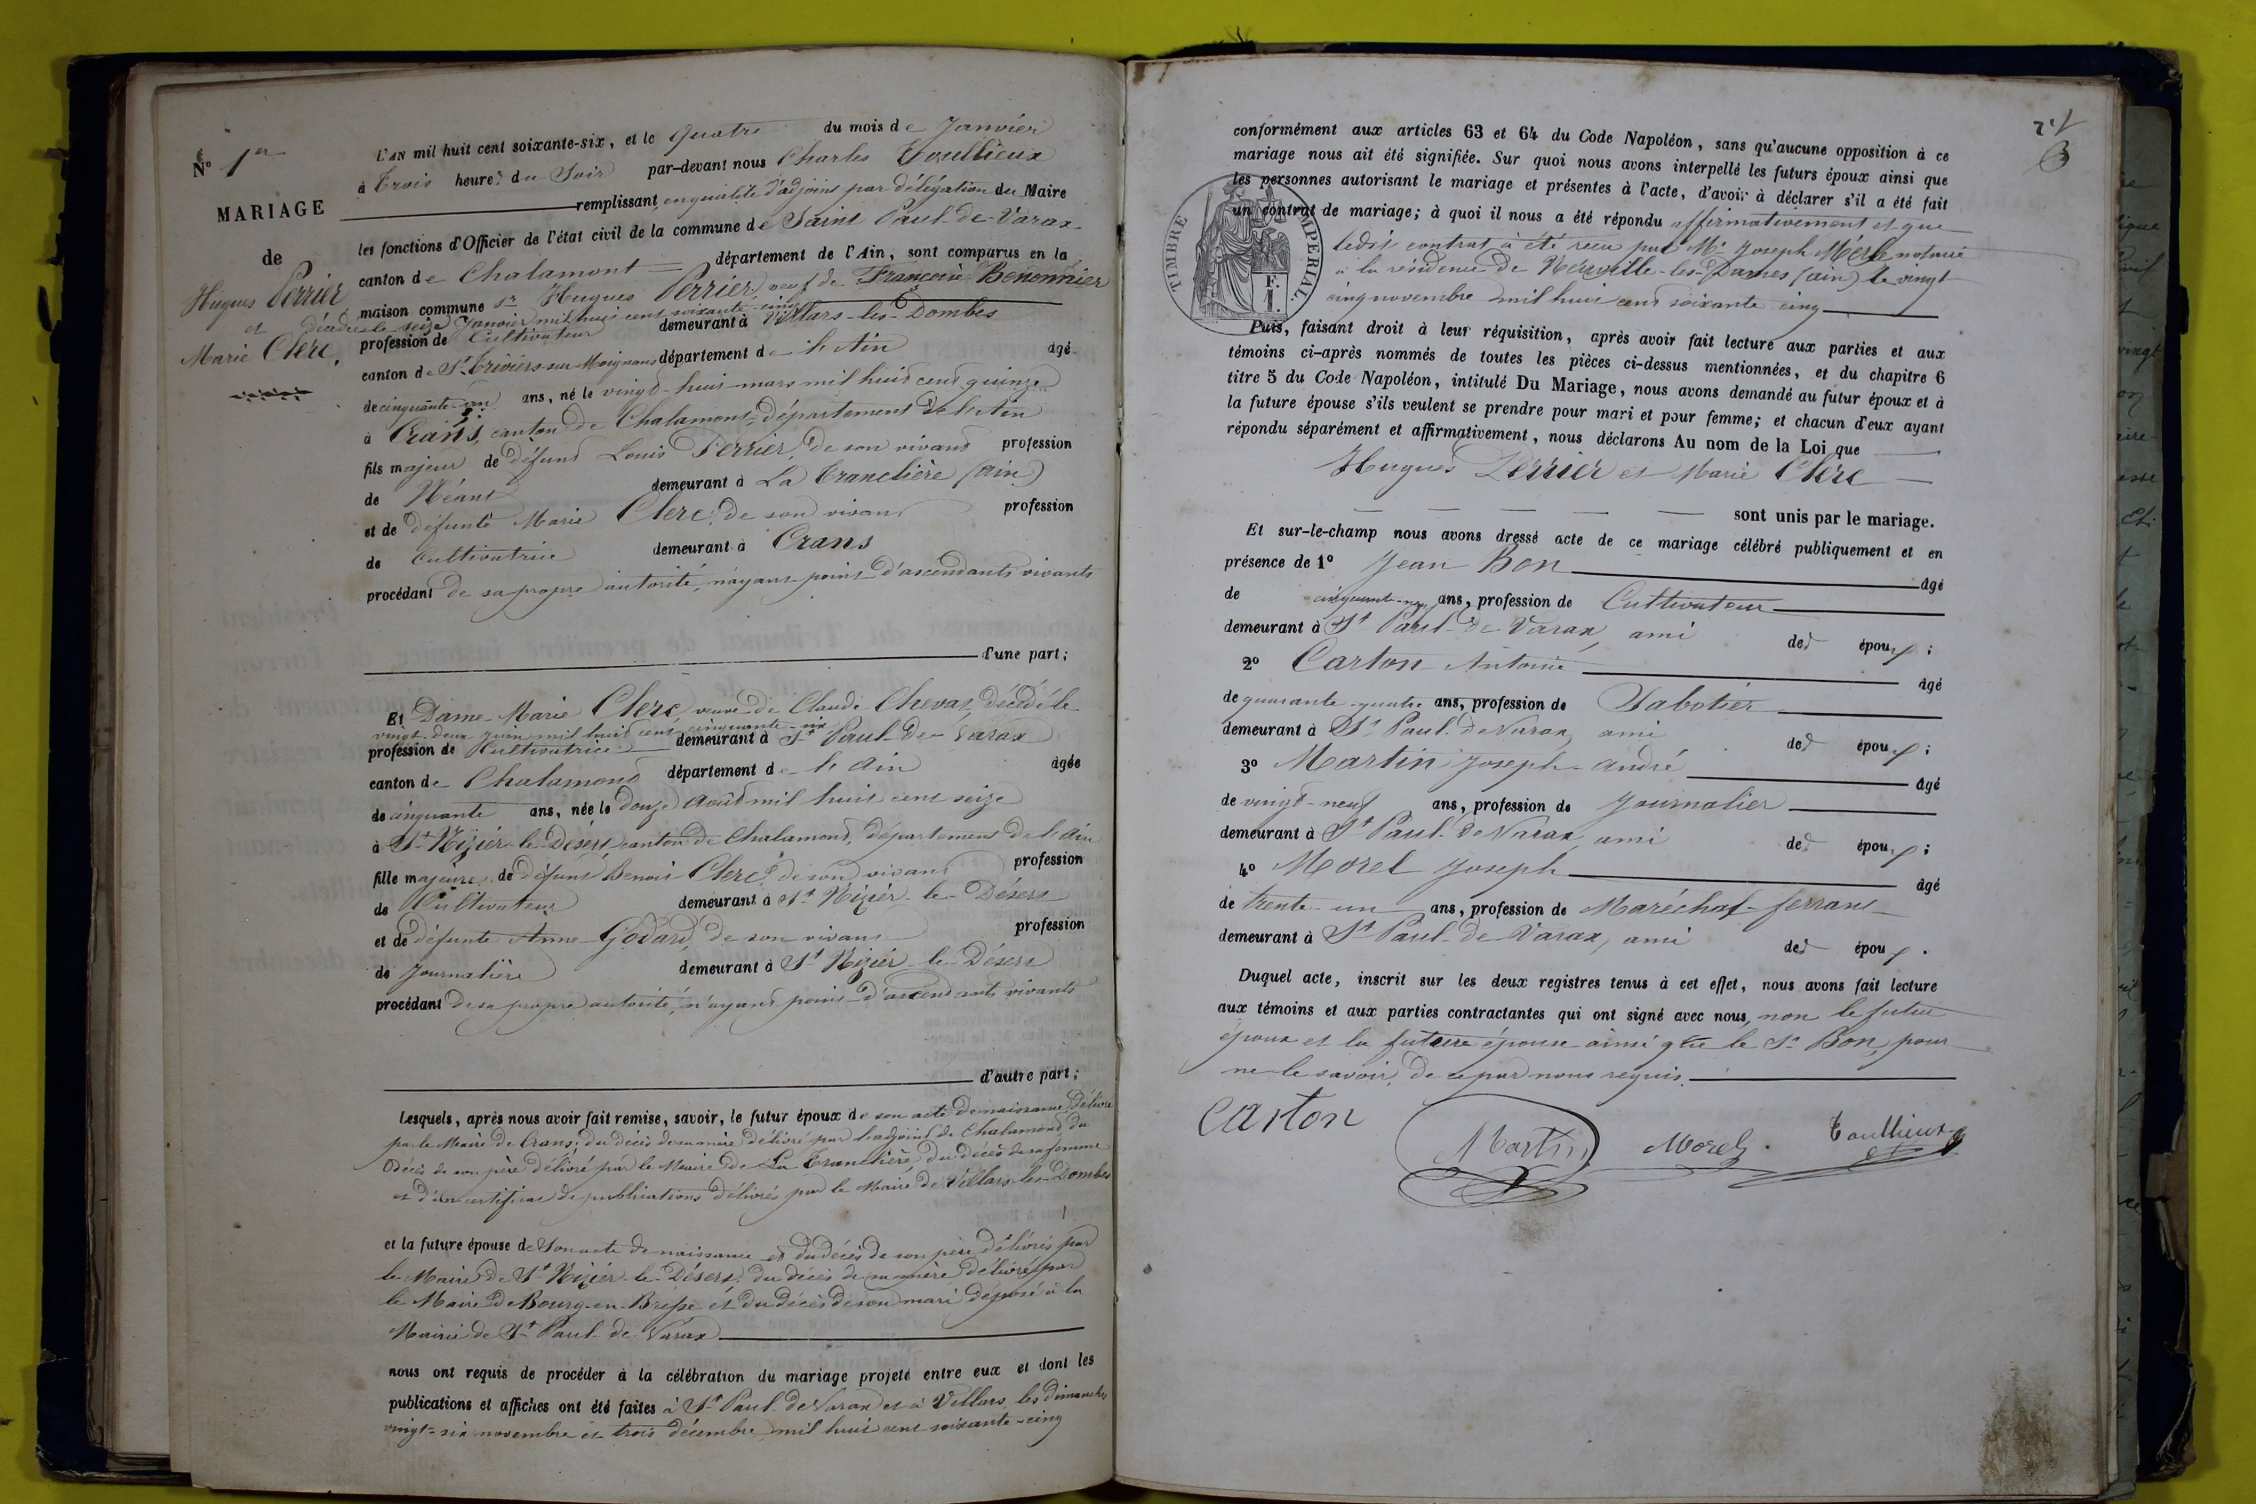 N° 1er
MARIAGE
de
Hugues Perrier
et
Marie Clerc.
L'AN mil huit cent soixante-six, et le quatre du mois de Janvier
à trois heures du Soir par-devant nous Charles Toullieux
remplissant en qualité d'adjoint par délégation du Maire
les fonctions d'Officier de l'état civil de la commune de Saint Paul-de-Varax
canton de Chalamont département de l'Ain, sont comparus en la
maison commune Sr Hugues Perrier, veuf de Françoise Benonnier
décédée le seize Janvier mil huit cent soixante-cinq
profession de Cultivateur demeurant à Villars-les-Dombes
canton de St Triviers-sur-Moignans département de l'Ain âgé
de cinquante-un ans, né le vingt-huit mars mil huit cent quinze
à Crans, canton de Chalamont, département de l'Ain
fils majeur de défunt Louis Perrier, de son vivant profession
de Néant demeurant à La Tranclière (Ain)
et de défunte Marie Clerc, de son vivant profession
de Cultivatrice demeurant à Crans
procédant de sa propre autorité, n'ayant point d'ascendants vivants
d'une part;
Et Dame Marie Clerc, veuve de Claude Chevat, décédé le
vingt-deux juin mil huit cent cinquante-six
profession de Cultivatrice demeurant à St Paul-de-Varax
canton de Chalamont département de l'Ain âgée
de cinquante ans, née le douze Août mil huit cent seize
à St Nizier-le-Désert, canton de Chalamont, département de l'Ain
fille majeure de défunt Benoit Clerc, de son vivant profession
de Cultivateur demeurant à St Nizier-le-Désert
et de défunte Anne Godard, de son vivant profession
de Journalière demeurant à St Nizier-le-Désert
procédant de sa propre autorité, n'ayant point d'ascendants vivants
d'autre part;
Lesquels, après nous avoir fait remise, savoir, le futur époux de son acte de naissance, délivré
par le Maire de Crans; du décès de sa mère délivré par l'adjoint de Chalamont, du
décès de son père délivré par le Maire de La Tranclière, du décès de sa femme
et d'un certificat de publications délivrés par le Maire de Villars-les-Dombes
et la future épouse de Son acte de naissance et du décès de son père délivrés par
le Maire de St Nizier-le-Désert, du décès de sa mère délivré par
le Maire de Bourg-en-Bresse et du décès de son mari déposé à la
Mairie de St Paul-de-Varax
nous ont requis de procéder à la célébration du mariage projeté entre eux et dont les
publications et affiches ont été faites à St Paul-de-Varax et à Villars, les dimanches
vingt-six novembre et trois décembre mil huit cent soixante-cinq
conformément aux articles 63 et 64 du Code Napoléon, sans qu'aucune opposition à ce
mariage nous ait été signifiée. Sur quoi nous avons interpellé les futurs époux ainsi que
les personnes autorisant le mariage et présentes à l'acte, d'avoir à déclarer s'il a été fait
un contrat de mariage; à quoi il nous a été répondu affirmativement et que
ledit contrat a été reçu par Me Joseph Mérle notaire
à la résidence de Neuville-les-Dames (Ain) le vingt
cinq novembre mil huit cent soixante cinq
TIMBRE IMPERIAL.
F.
1.
Puis, faisant droit à leur réquisition, après avoir fait lecture aux parties et aux
témoins ci-après nommés de toutes les pièces ci-dessus mentionnées, et du chapitre 6
titre 5 du Code Napoléon, intitulé Du Mariage, nous avons demandé au futur époux et à
la future épouse s'ils veulent se prendre pour mari et pour femme; et chacun d'eux ayant
répondu séparément et affirmativement, nous déclarons Au nom de la Loi que
Hugues Perrier et Marie Clerc
sont unis par le mariage.
Et sur-le-champ nous avons dressé acte de ce mariage célébré publiquement et en
présence de 1° Jean Bon âgé
de ans, profession de Cultivateur
demeurant à St Paul-de-Varax, ami des époux;
2° Carton Antoine âgé
de quarante-quatre ans, profession de Sabotier
demeurant à St Paul-de-Varax, ami des époux;
3° Martin Joseph-André âgé
de vingt-neuf ans, profession de Journalier
demeurant à St Paul-de-Varax, ami des époux;
4° Morel Joseph âgé
de trente-un ans, profession de Maréchal-ferrant
demeurant à St Paul-de-Varax, ami des époux.
Duquel acte, inscrit sur les deux registres tenus à cet effet, nous avons fait lecture
aux témoins et aux parties contractantes qui ont signé avec nous, non le futur
époux et la future épouse ainsi que le Sr Bon, pour
ne le savoir, de ce par nous requis.
Carton Martin Morel Toullieux